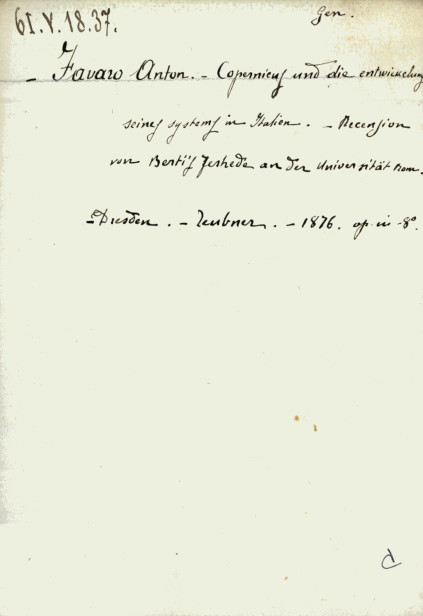 61.V.18.37.
Gen.
- Favaro Anton. - Copernicus und die entwickelung
seines systems in Italien. - Recension
von Bertis Festrede an der Universität Rom.
- Dresden. - Teubner. - 1876. op. in -8°.